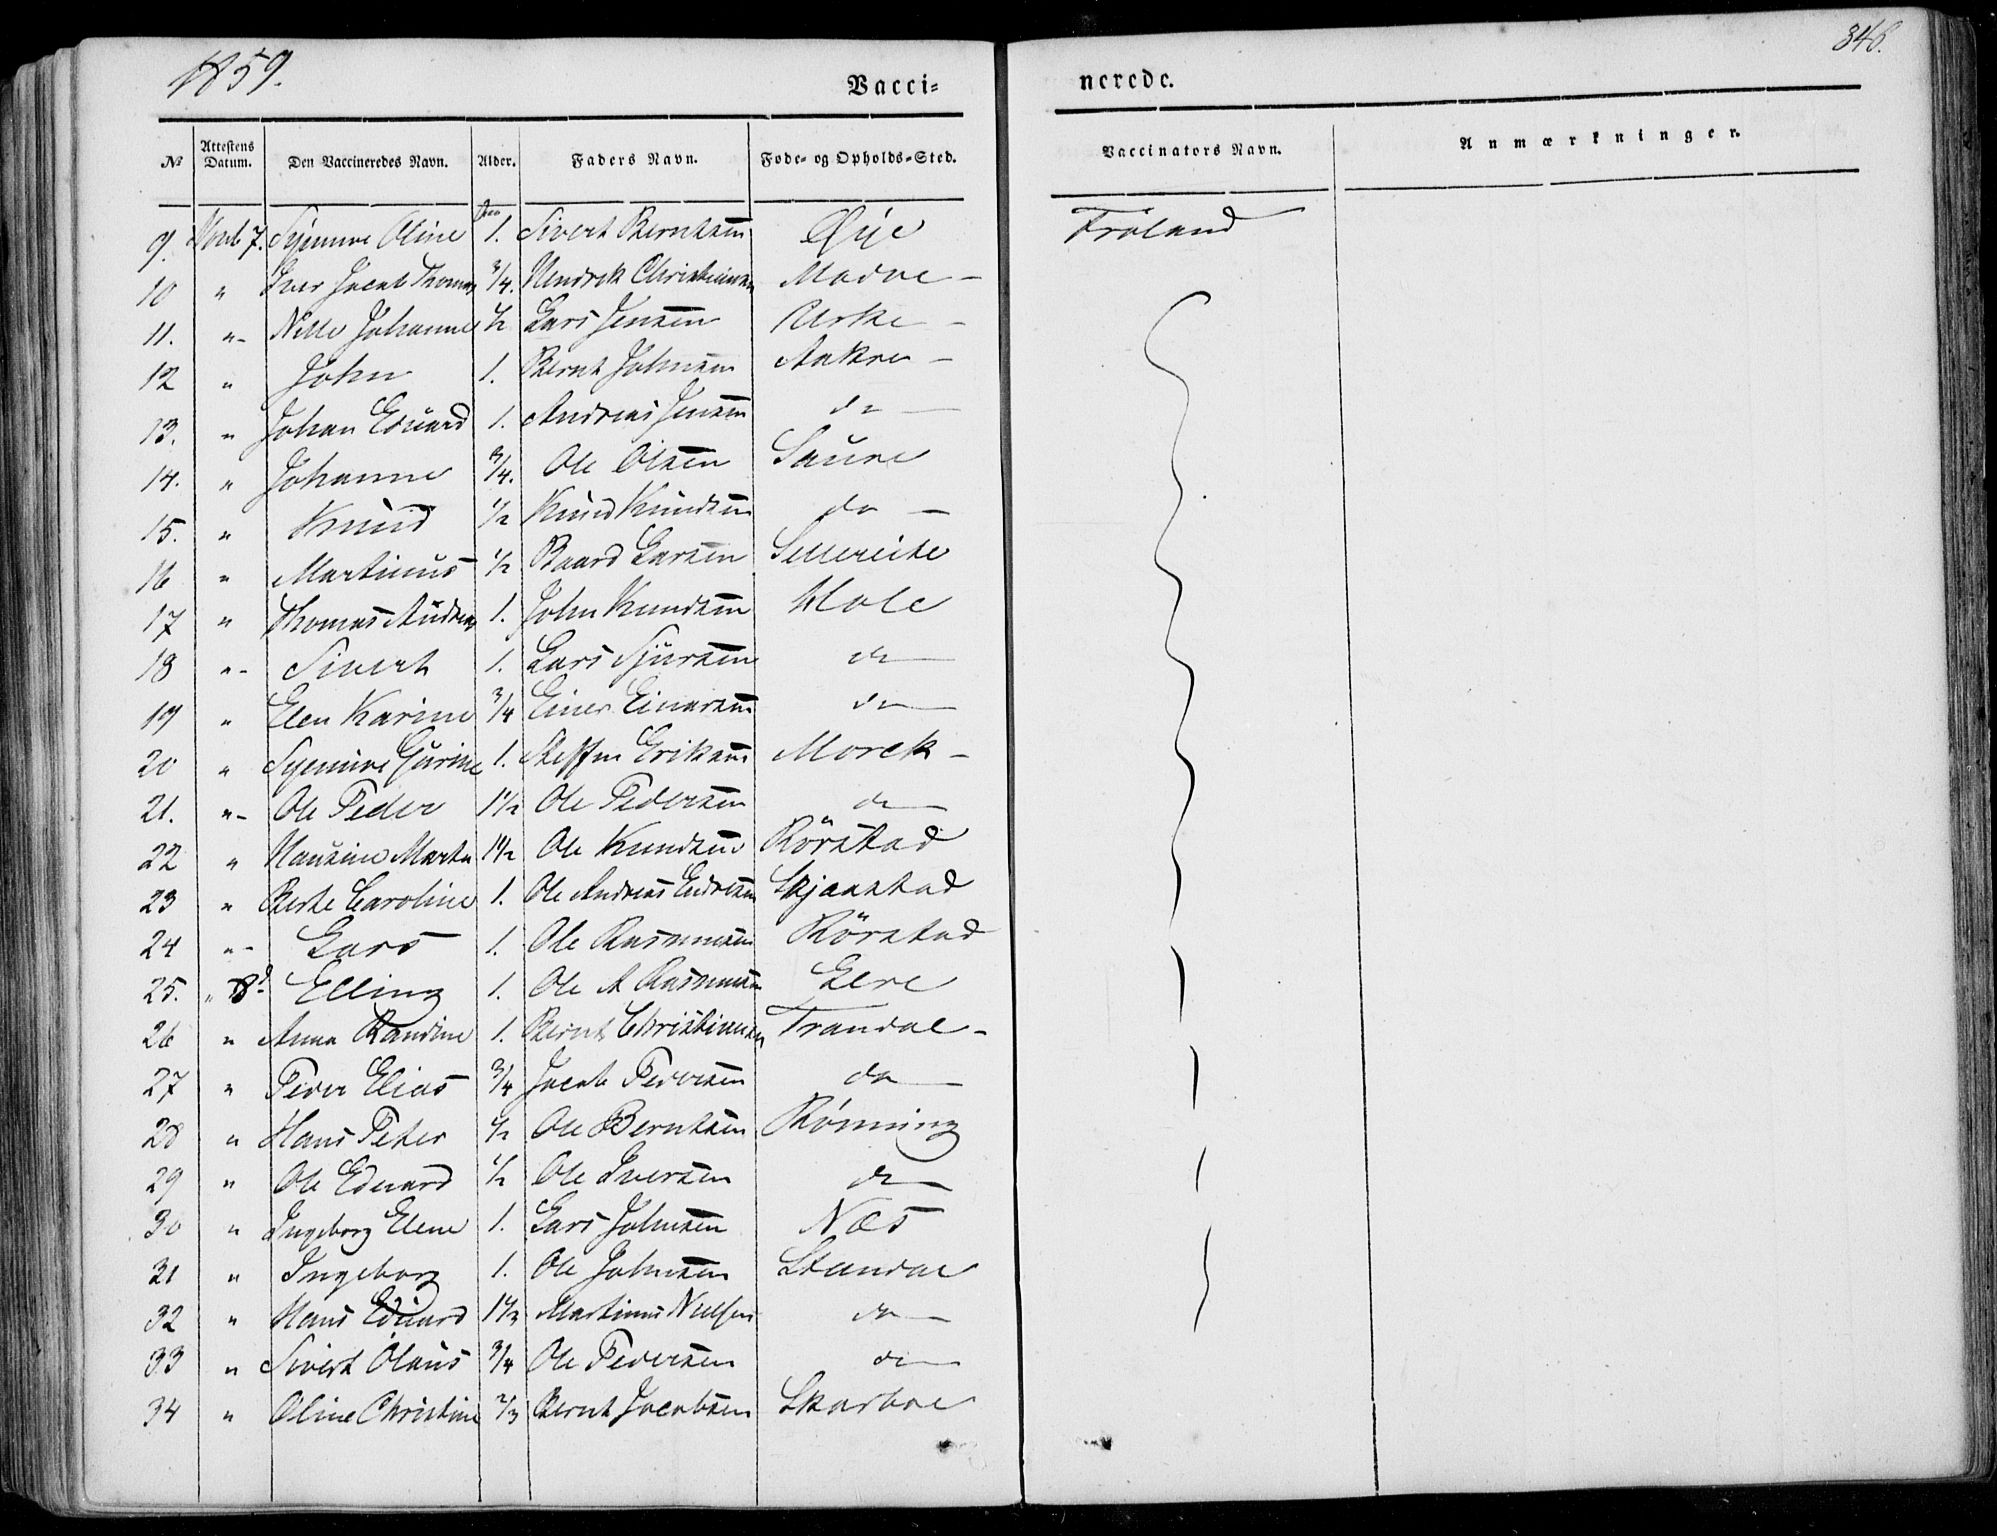 1859.
346.
Vacci-
nerede.
№ Attestens Datum. Den Vaccineredes Navn. Alder. Faders Navn. Føde- og Opholds-Sted. Vaccinators Navn. Anmærkninger.
9. 7. Oline 1. Sivert Berntsen Øye Fröland
10 " Iver Jacob Thomas 3/4. Hendrik Christiansen -
11. "- Johanne 1/2 Lars Jensen Urke -
12 " John 1. Bernt Johnsen Aakre -
13. " Johan Eduard 1. Andreas Jensen do -
14. " Johanne 3/4. Ole Olsen Saure
15. " Knud 1/2 Knud Knudsen do -
16 " Martinus 1/2 Baard Larsen Sellereite
17 " Thomas Andreas 1. John Knudsen Hole
18 "- Sivert 1. Lars Sjursen do -
19 " Elen Karine 3/4 Einer Einersen do -
20 " Gurine 1. Steffen Eriksen Morek -
21. "- Ole Peder 1 1/2 Ole Pedersen do -
22 " Hansine Marta 1 1/2 Ole Knudsen Rörstad
23 " Berte Caroline 1. Ole Andreas Endresen Skjaastad
24 "- Lars 1. Ole Rasmusen Rörstad
25. " 8d. Elling 1. Ole A Rasmusen
26 " Anna Randine 1. Bernt Christiansen Trandal -
27 " Peder Elias 3/4 Jacob Pedersen do -
28 " Hans Peter 1/2 Ole Berntsen Rønning
29 " Ole Eduard 1/2 Ole Iversen do -
30 " Ingeborg Elene 1. Lars Johnsen Næs
31 " Ingeborg 1. Ole Johnsen Standal
32 " Hans Eduard 1 1/3 Martinus Nielsen do -
33 " Sivert Olaus 3/4 Ole Pedersen do -
34 " Oline Christine 2/3 Bernt Jacobsen Skarboe